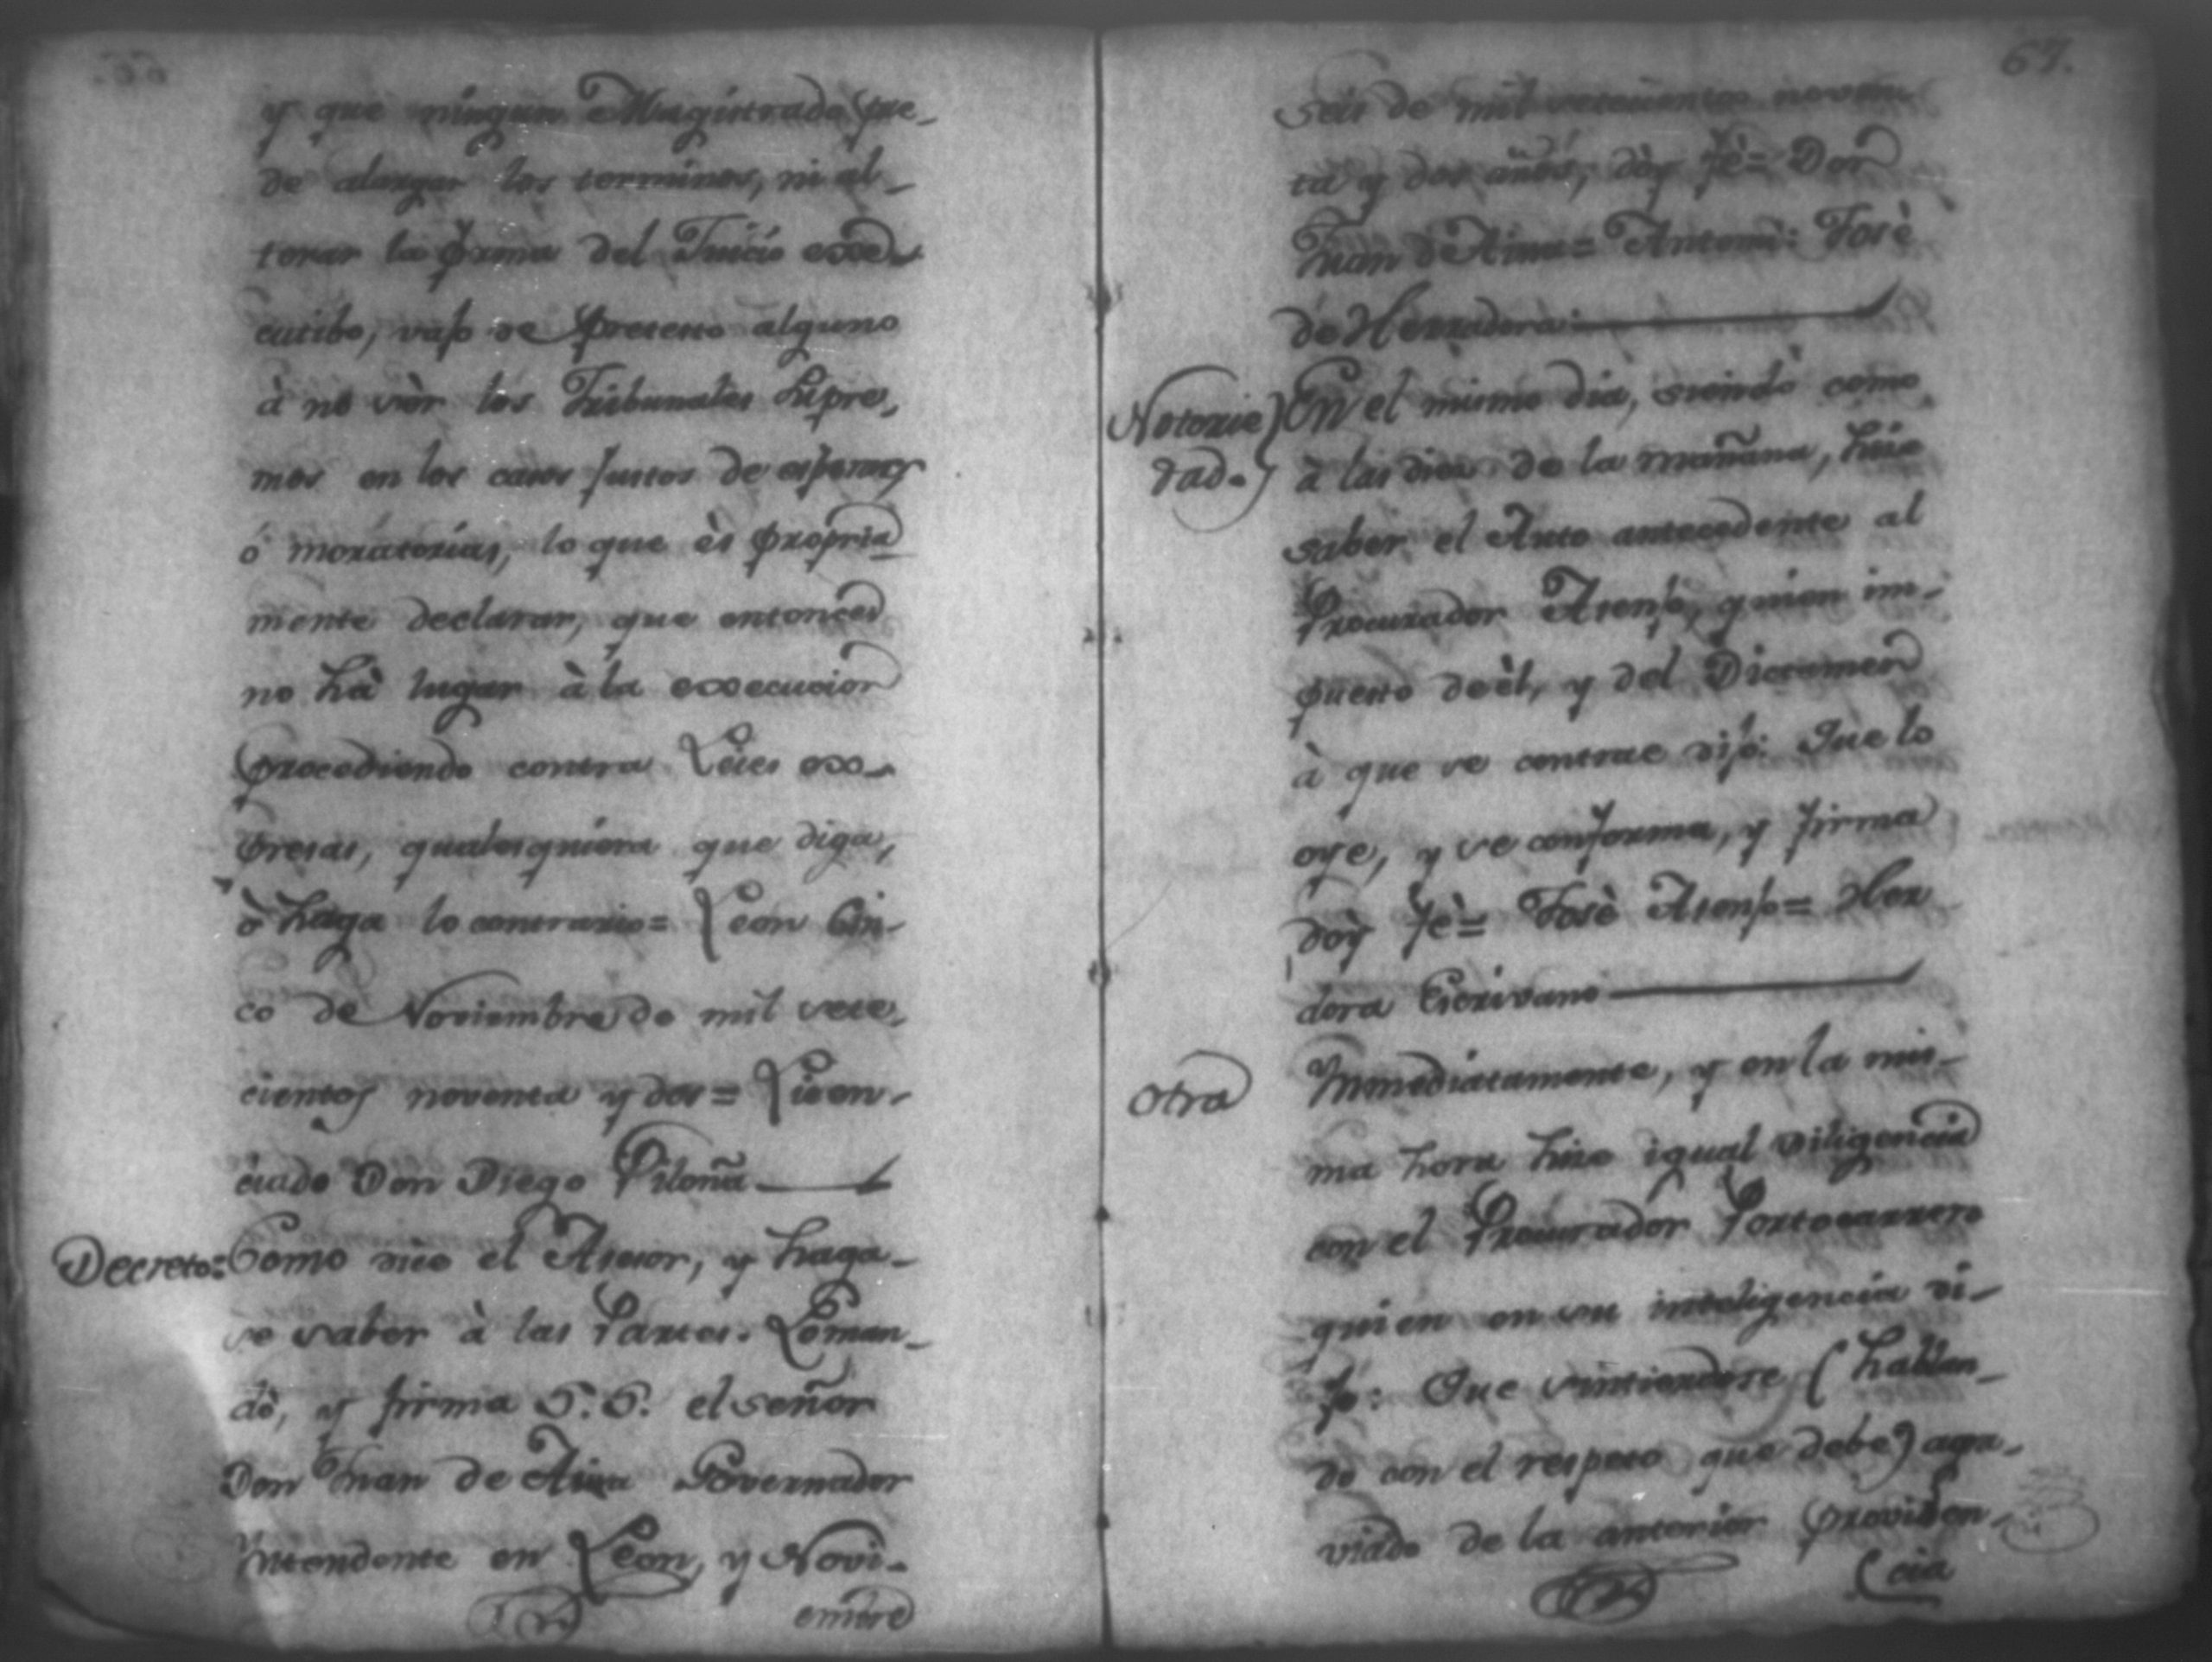 y que ningun Magistrado pue-
de alargar los terminos, ni al-
terar la forma del Juicio exe-
cutibo, vajo de pretexto alguno
à no sèr los Tribunales Supre-
mos en los casos justos de esperas
ó moratorias, lo que ès propria
mente declarar, que entonces
no hà lugar à la execucion
procediendo contra Leies ex-
presas, qualesquiera que diga,
ò haga lo contrario = Leon Cin-
co de Noviembre de mil sete-
cientos noventa y dos = Licen-
ciado Don Diego Piloña
Decreto: Como dice el Asesor, y haga-
se saber à las Partes. Lo man-
dò, y firma S.S. el señor
Don Juan de Aisa Governador
Yntendente en Leon, y Novi-
embre
67.
seis de mil setecientos noven-
ta y dos años, dòy fè = Don
Juan de Aisa = Antoni: Josè
de Herradora
Notorie) En el mismo dia, siendo como
dad.) à las diez de la mañana, hice
saber el Auto antecedente al
Procurador Asenjo, quien im-
puesto de èl, y del Dictamen
à que se contrae dijo: Que lo
oye, y se conforma, y firma
dòy fè = Josè Asenjo = Her
dora Escrivano
Otra Ynmediatamente, y en la mis-
ma hora hice igual diligencia
con el Procurador Portocarrero
quien en su inteligencia di-
jo: Que sintiendose (hablan-
do con el respeto que debe) agra-
viado de la anterior providen-
cia